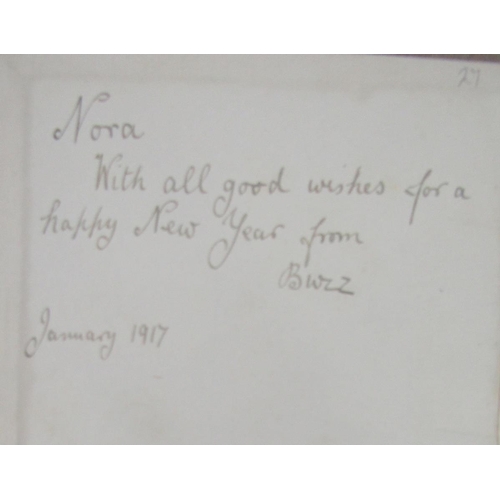 27
Nora
With all good wishes for a
happy New Year from
Buzz
January 1917